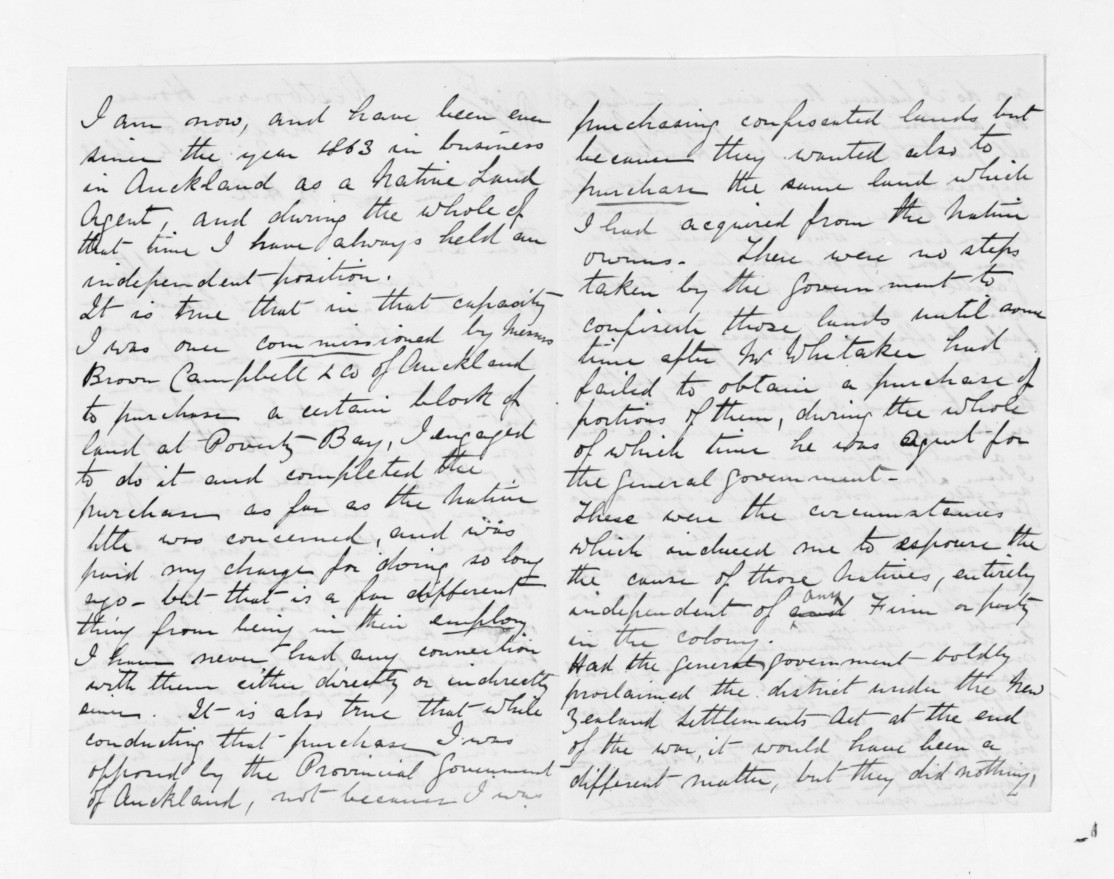 I am now, and have been ever
since the year 1863 in business
in Auckland as a Native Land
Agent, and during the whole of
that time I have always held an
independent position.
It is true that in that capacity
I was once commissioned by Messrs
Brown Campbell & Co of Auckland
to purchase a certain block of
land at Poverty Bay, I engaged
to do it and completed the
purchase as far as the Native
title was concerned, and was
paid my charge for doing so long
ago - but that is a far different
thing from being in their employ
I have never had any connection
with them either directly or indirectly
since. It is also true that while
conducting that purchase I was
opposed by the Provincial Government
of Auckland, not because I was
purchasing confiscated lands but
because they wanted also to
purchase the same land which
I had acquired from the Native
owners. There were no steps
taken by the Government to
confiscate those lands until some
time after Mr Whitaker had
failed to obtain a purchase of
portions of them, during the whole
of which time he was agent for
the General Government -
These were the circumstances
which induced me to espouse the
the cause of those Natives, entirely
independent of and any Firm or party
in the colony.
Had the General Government boldly
proclaimed the district under the New
Zealand Settlements Act at the end
of the war, it would have been a
different matter, but they did nothing,